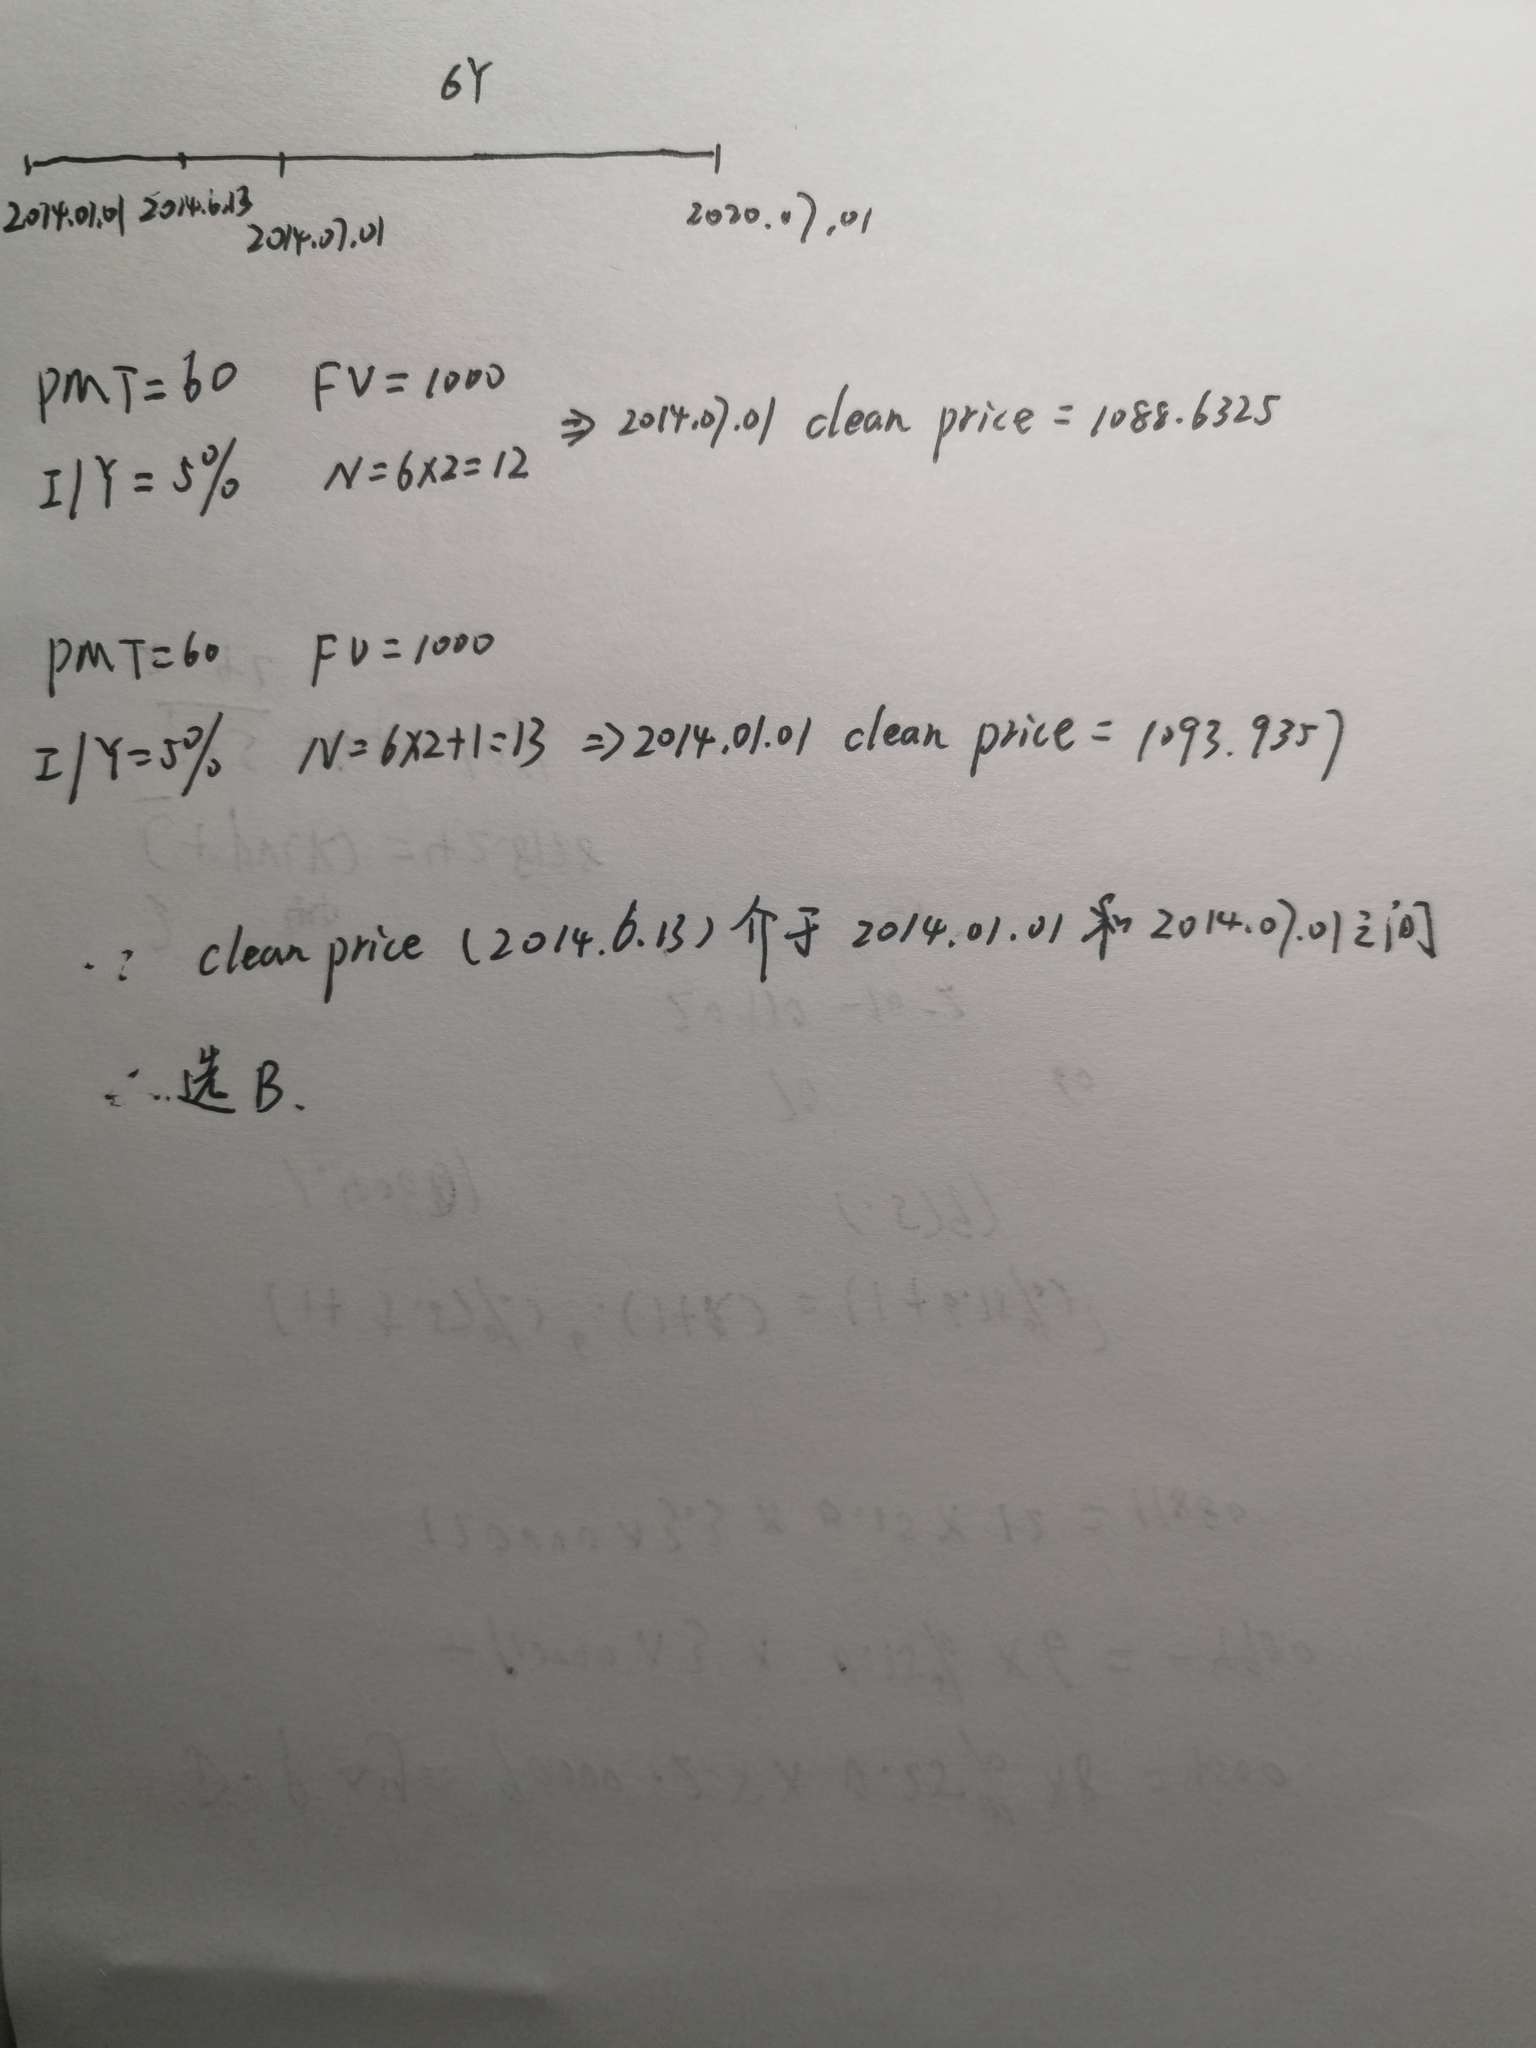 6Y
2014.01.01 2014.6.13
2014.07.01
2020.07.01
PMT=60 FV=1000
I/Y=5% N=6×2=12
⇒ 2014.07.01 clean price = 1088.6325
PMT=60 FV=1000
I/Y=5% N=6×2+1=13 ⇒ 2014.01.01 clean price = 1093.9357
∵ clean price (2014.6.13) 介于 2014.01.01 和 2014.07.01之间
∴选B.